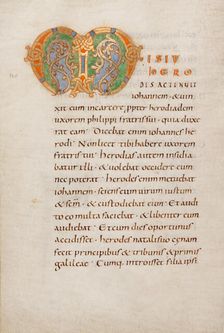 MISIT
HERO
DES AC TENUIT
iohannem · & uin
xit eum incarcere ppter herodiadem
uxorem philippi fratris sui · quia duxe
rat eam · Dicebat enim iohannes he
rodi · Non licet tibi habere uxorem
fratris tui · herodias autem insidia
batur illi · & uolebat occidere eum
nec poterat · herodes enim metuebat
iohannem · sciens eum uirum iustum
& scm · & custodiebat eum · Et audi
to eo multa faciebat · & libenter eum
audiebat · Et cum dies oportunus
accidisset · herodes natalis suo cenam
fecit principibus & tribunis & primis
galileae · Cumq introisset filia ipsi